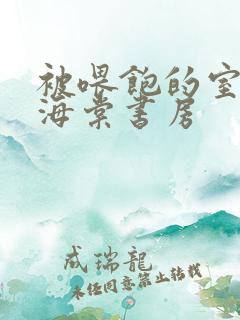 被喂饱的室
海棠书房
成瑞龙
未经同意禁止转载